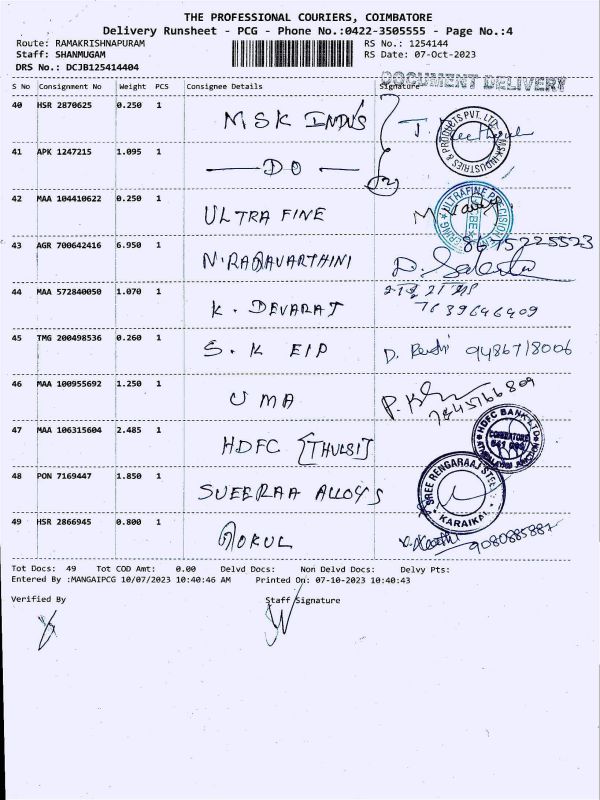 THE PROFESSIONAL COURIERS, COIMBATORE
Delivery Runsheet - PCG - Phone No.:0422-3505555 - Page No.:4
Route: RAMAKRISHNAPURAM RS No.: 1254144
Staff: SHANMUGAM RS Date: 07-Oct-2023
DRS No.: DCJB125414404
DOCUMENT DELIVERY
S No Consignment No Weight PCS Consignee Details Signature
40 HSR 2870625 0.250 1 MSK INDUS
41 APK 1247215 1.095 1 — DO —
42 MAA 104410622 0.250 1 ULTRA FINE
43 AGR 700642416 6.950 1 8675225523
44 MAA 572840050 1.070 1 K. DEVARAJ 7639646409
45 TMG 200498536 0.260 1 S.K EIP D. 9486718006
46 MAA 100955692 1.250 1 UMA 7845766809
47 MAA 106315604 2.485 1 HDFC [THULSI] HDFC BANK LTD COIMBATORE
48 PON 7169447 1.850 1 SUEERAA ALLOYS SREE RENGARAAJ STEEL KARAIKAL
49 HSR 2866945 0.800 1 GOKUL 9080885887
Tot Docs: 49 Tot COD Amt: 0.00 Delvd Docs: Non Delvd Docs: Delvy Pts:
Entered By :MANGAIPCG 10/07/2023 10:40:46 AM Printed On: 07-10-2023 10:40:43
Verified By Staff Signature